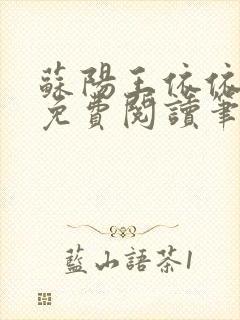 蘇陽王依依
免費閱讀筆
藍山語茶1